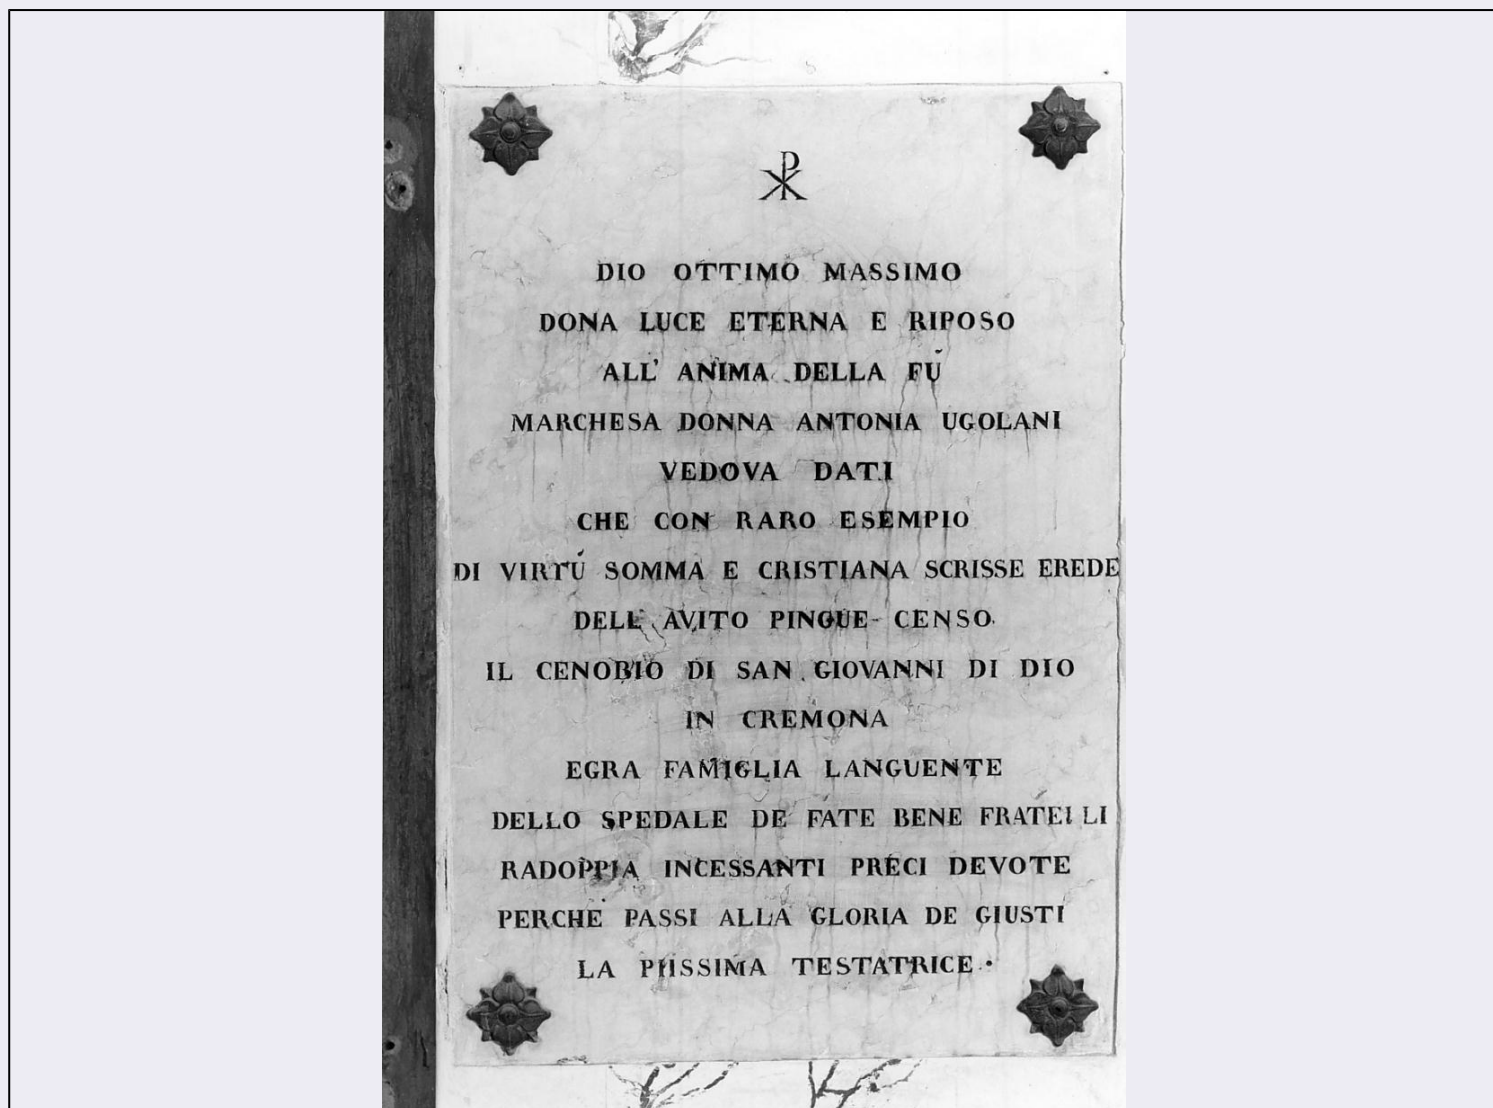 ☧
DIO OTTIMO MASSIMO
DONA LUCE ETERNA E RIPOSO
ALL' ANIMA DELLA FÙ
MARCHESA DONNA ANTONIA UGOLANI
VEDOVA DATI
CHE CON RARO ESEMPIO
DI VIRTÚ SOMMA E CRISTIANA SCRISSE EREDE
DELL' AVITO PINGUE CENSO.
IL CENOBIO DI SAN GIOVANNI DI DIO
IN CREMONA
EGRA FAMIGLIA LANGUENTE
DELLO SPEDALE DE FATE BENE FRATELLI
RADOPPIA INCESSANTI PRECI DEVOTE
PERCHE PASSI ALLA GLORIA DE GIUSTI
LA PIISSIMA TESTATRICE.